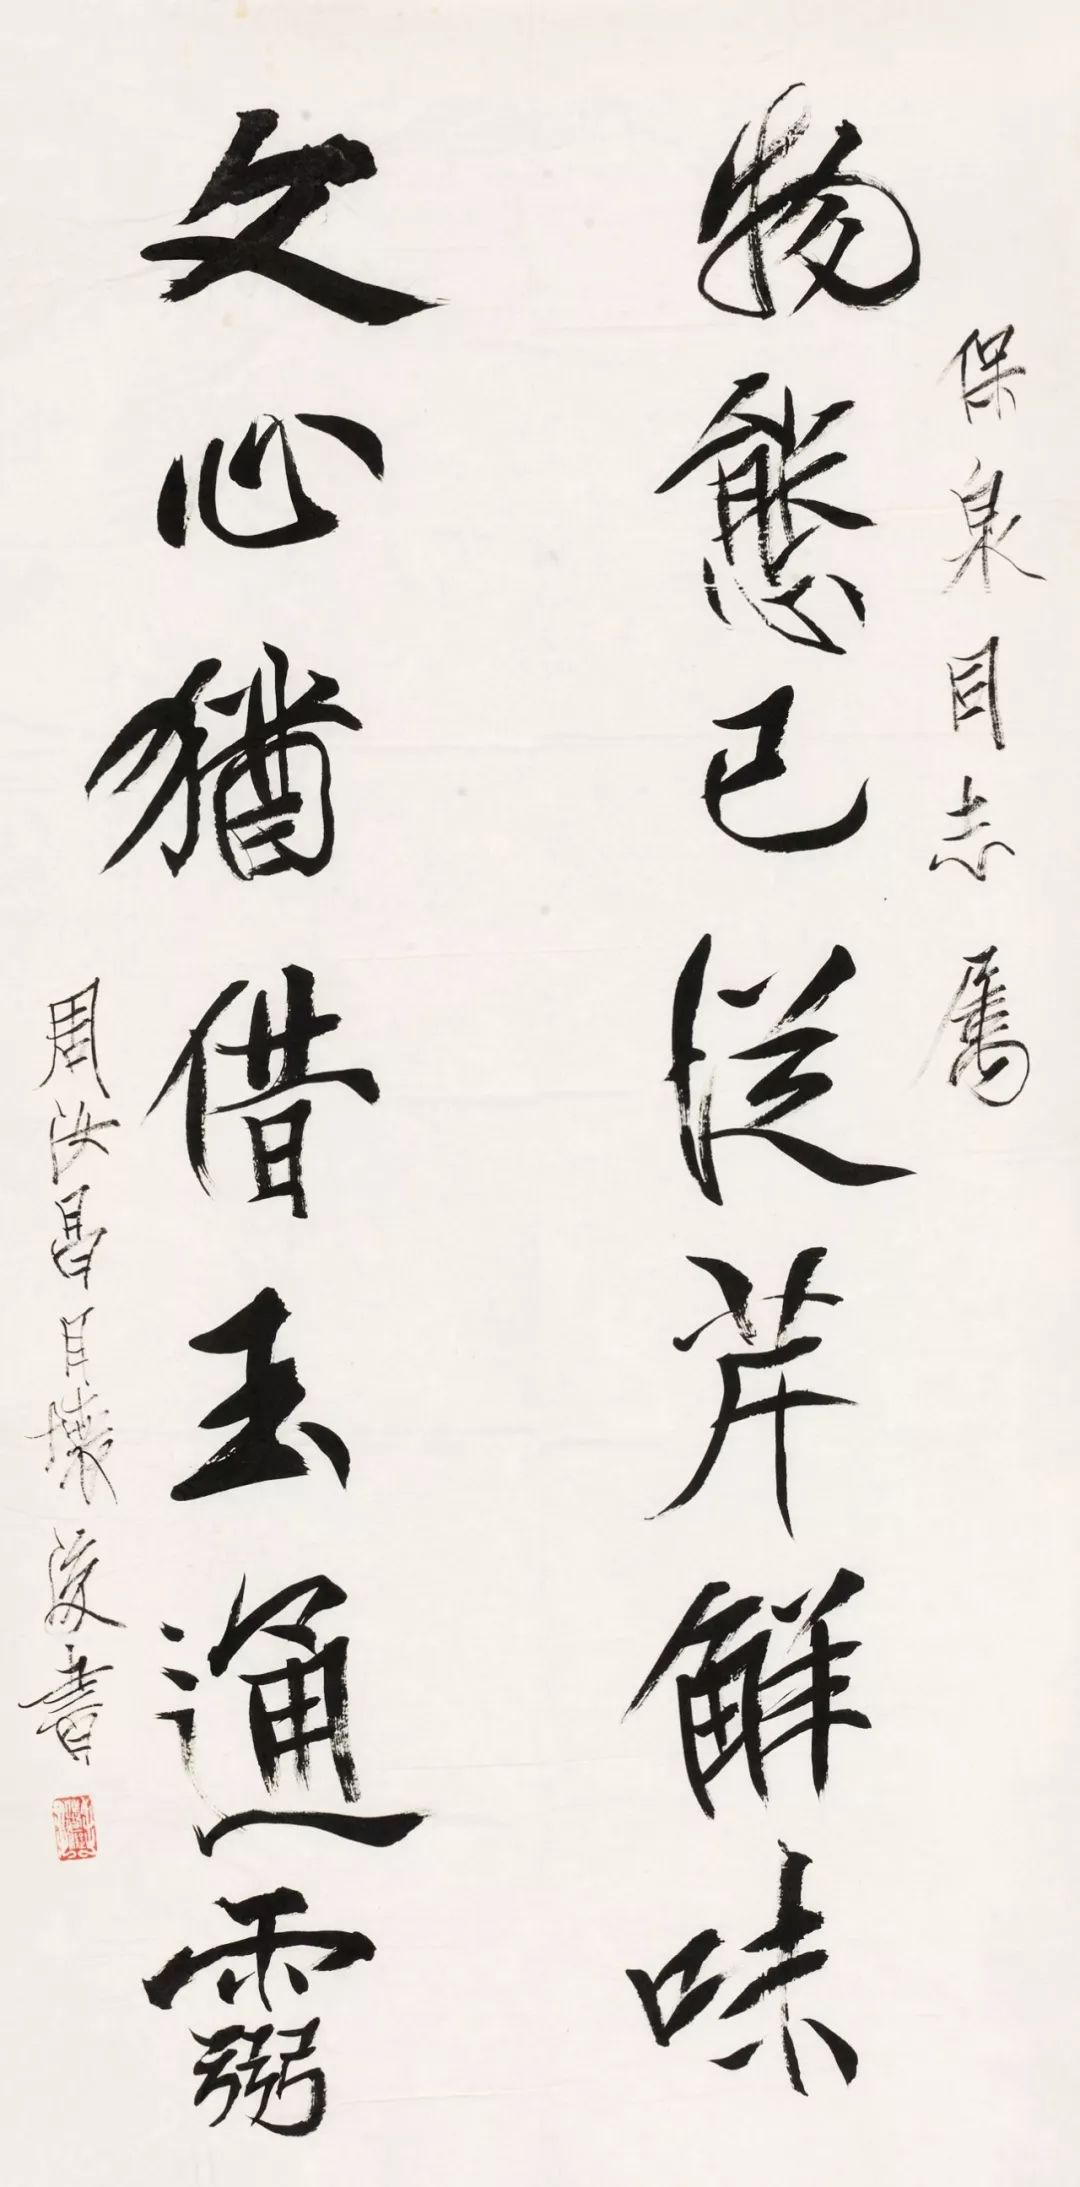 保泉同志属
物態已從芹解味
文心猶借玉通靈
周汝昌目壞後書